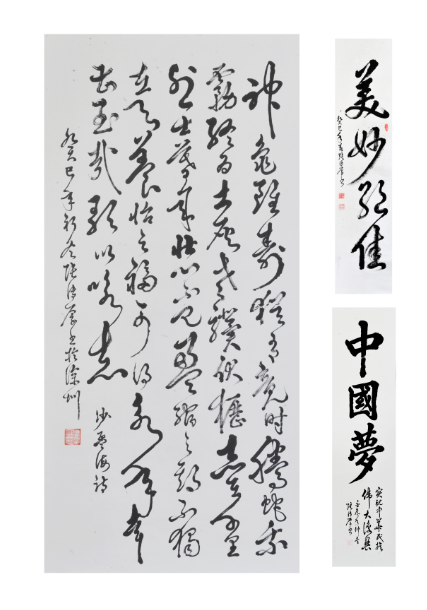 神龜雖壽猶有竟時騰蛇乘
霧終為土灰老驥伏櫪志在千里
烈士暮年壯心不已盈縮之期不獨
在天養怡之福可得永年幸
甚至哉歌以詠志
癸巳年初冬書於徐州
美妙絕佳
癸巳年
中國夢
實現中華民族
偉大復興